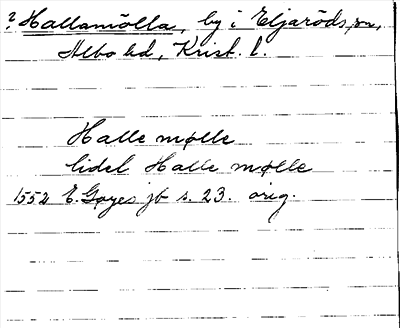 ? Hallamölla, by i Eljaröds sn,
Albo hd, Krist. l.
Halle mølle
lidel Halle mølle
1552 E. Gøyes jb s. 23. orig.